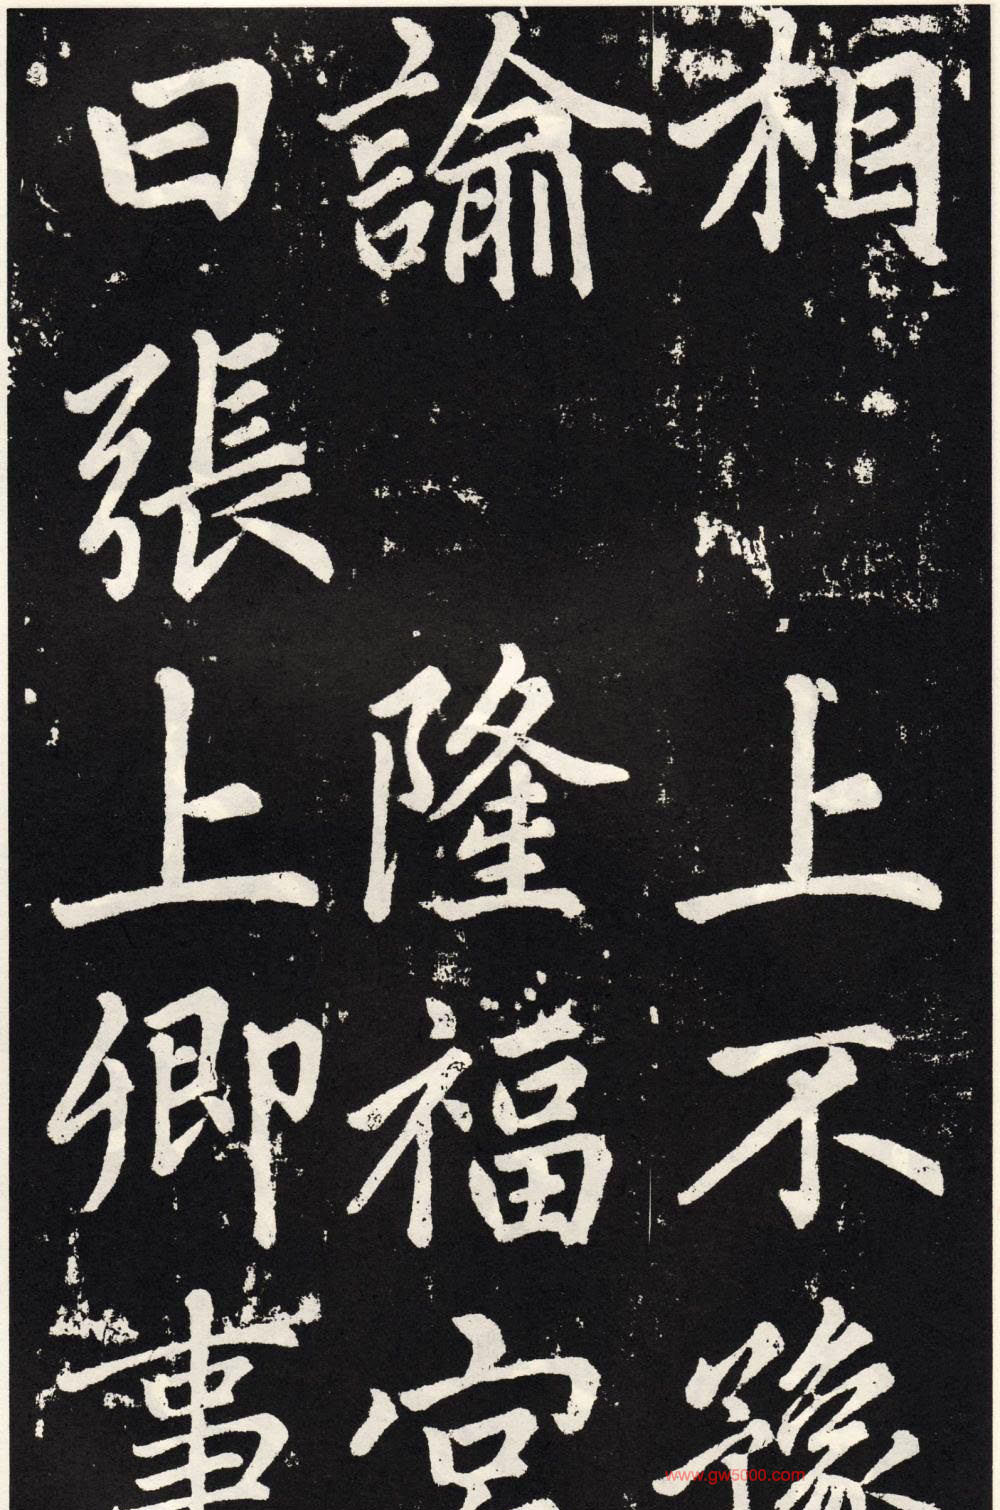 相上不豫
諭隆福宫
曰張上卿事
www.gw5000.com